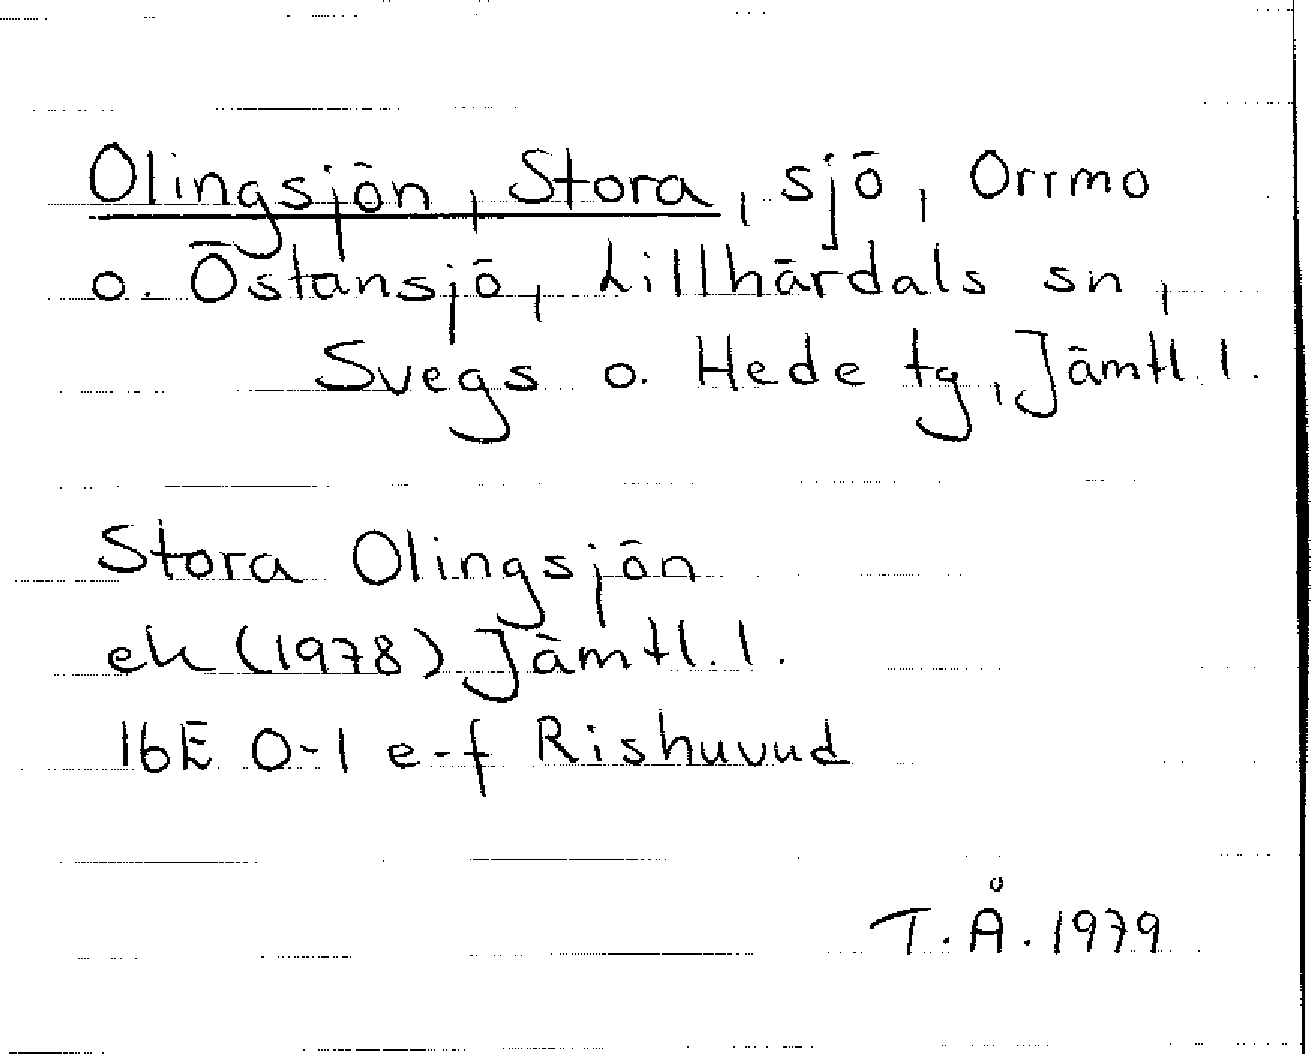 Olingsjön, Stora, sjö, Orrmo
o. Östansjö, Lillhärdals sn,
Svegs o. Hede tg, Jämtl. l.
Stora Olingsjön
ek (1978) Jämtl. l.
16E 0-1 e-f Rishuvud
T. Å. 1979